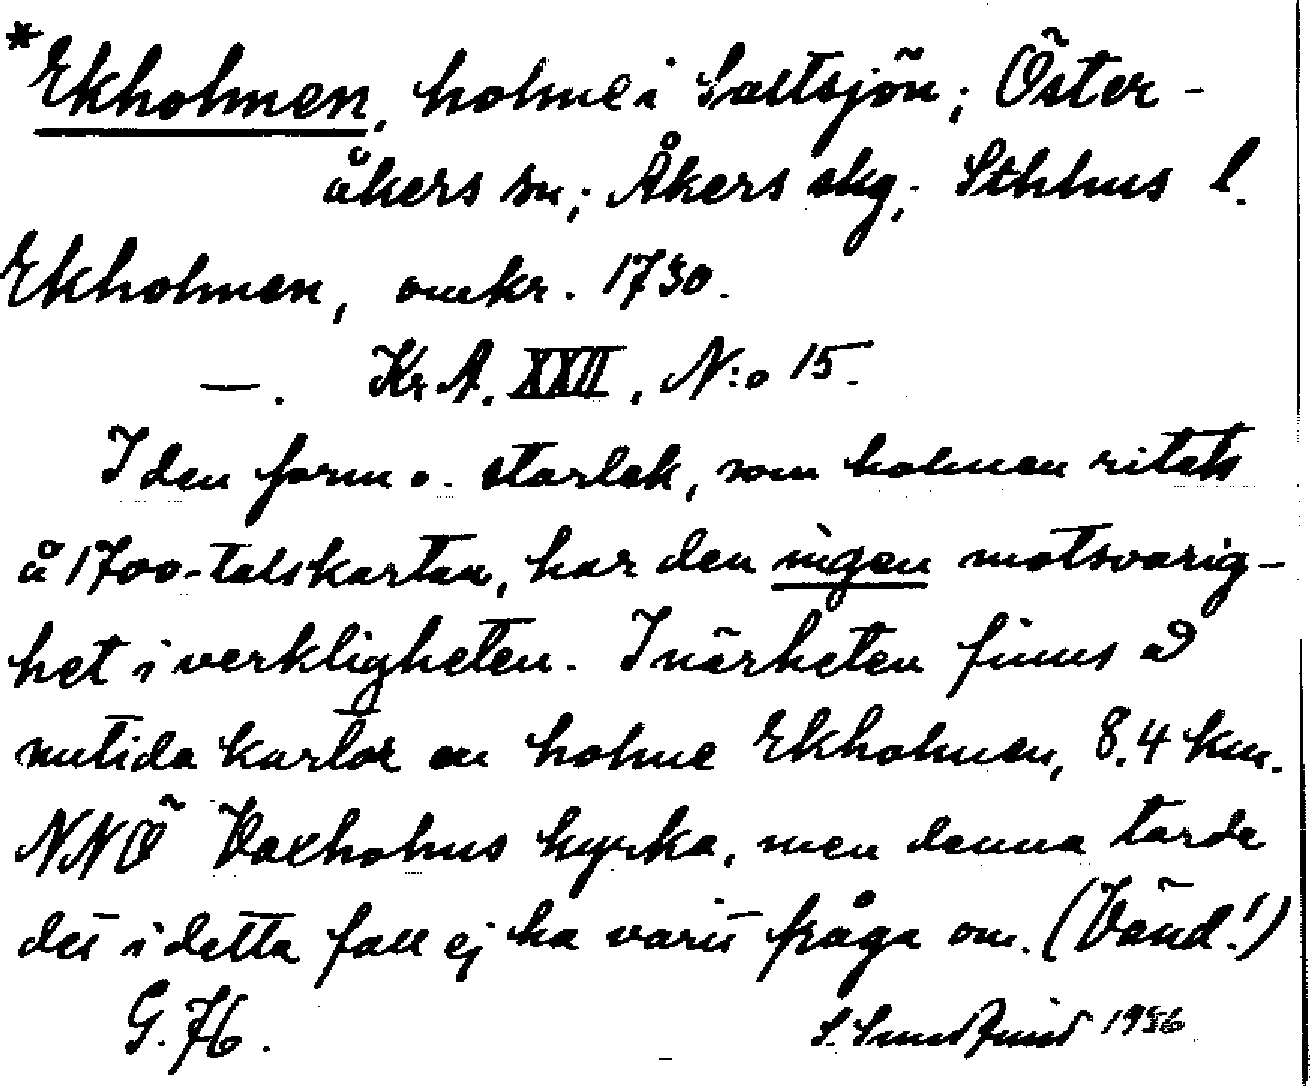 *Ekholmen, holme i Saltsjön; Öster-
åkers sn; Åkers skg; Sthlms l.
Ekholmen, omkr. 1730.
—. Kr. A. XXII, N:o 15.
I den form o. storlek, som holmen ritats
å 1700-talskartan, har den ingen motsvarig-
het i verkligheten. I närheten finns å
nutida kartor en holme Ekholmen, 8.4 km.
NNÖ Vaxholms kyrka, men denna torde
det i detta fall ej ha varit fråga om. (Vänd!)
G. H. S. 1936